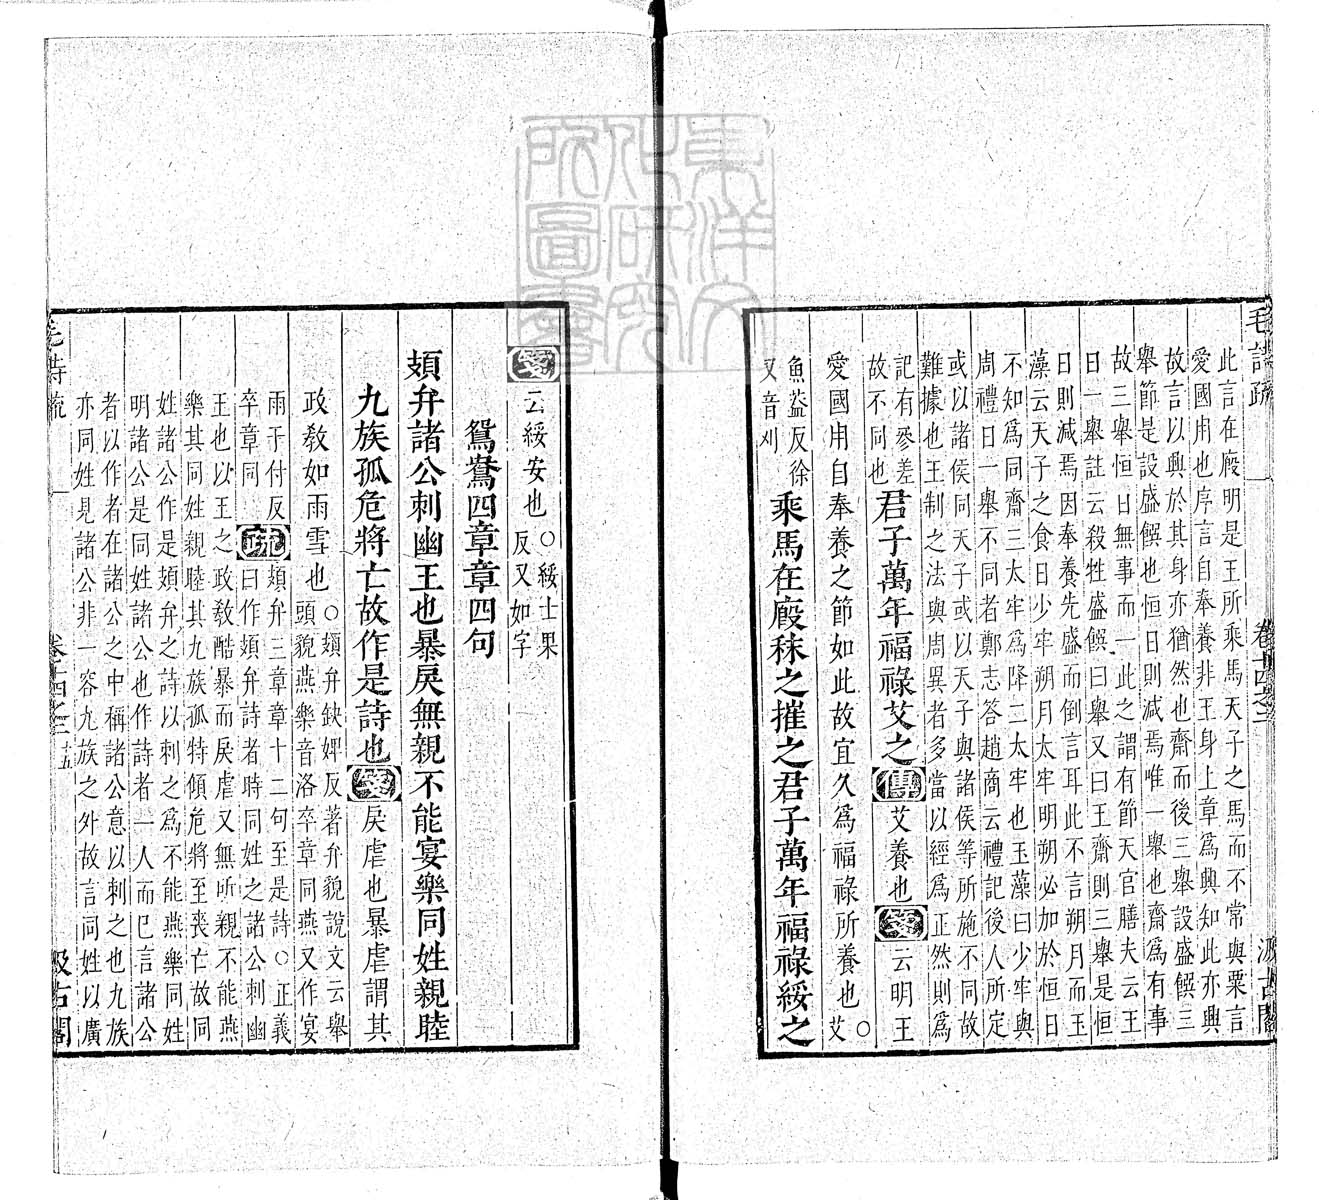 毛詩疏
卷十四之二
汲古閣
此言在廐明是王所乘馬天子之馬而不常與粟言
愛國用也序言自奉養非王身上章為興知此亦興
故言以興於其身亦猶然也齋而後三舉設盛饌三
舉節是設盛饌也恒日則減焉唯一舉也齋為有事
故三舉恒日無事而一此之謂有節天官膳夫云王
日一舉註云殺牲盛饌曰舉又曰王齋則三舉是恒
日則減焉因奉養先盛而倒言耳此不言朔月而玉
藻云天子之食日少牢朔月太牢明朔必加於恒日
不知為同齋三太牢為降二太牢也玉藻曰少牢與
周禮日一舉不同者鄭志答趙商云禮記後人所定
或以諸侯同天子或以天子與諸侯等所施不同故
難據也王制之法與周異者多當以經為正然則為
記有參差
故不同也
君子萬年福祿艾之傳艾養也箋云明王
愛國用自奉養之節如此故宜久為福祿所養也○艾
魚蓋反徐
又音刈
乘馬在廄秣之摧之君子萬年福祿綏之
箋云綏安也○綏士果
反又如字
鴛鴦四章章四句
頍弁諸公刺幽王也暴戾無親不能宴樂同姓親睦
九族孤危將亡故作是詩也箋戾虐也暴虐謂其
政教如雨雪也○頍弁缺婢反著弁貌說文云舉
頭貌燕樂音洛卒章同燕又作宴
雨于付反
卒章同
疏頍弁三章章十二句至是詩○正義
曰作頍弁詩者時同姓之諸公刺幽
王也以王之政教酷暴而戾虐又無所親不能燕
樂其同姓親睦其九族孤特傾危將至喪亡故同
姓諸公作是頍弁之詩以刺之為不能燕樂同姓
明諸公是同姓諸公也作詩者一人而已言諸公
者以作者在諸公之中稱諸公意以刺之也九族
亦同姓見諸公非一容九族之外故言同姓以廣
毛詩疏
卷十四之二
十五
汲古閣